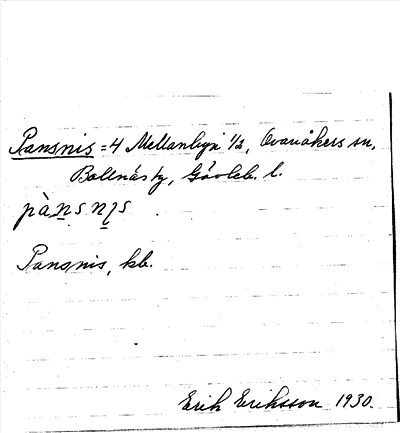 Pansnis = 4 Mellanbyn 1/2, Ovanåkers sn,
Bollnäs ty, Gävleb. l.
pànsnɪs .
Pansnis, kb.
Erik Eriksson 1930.